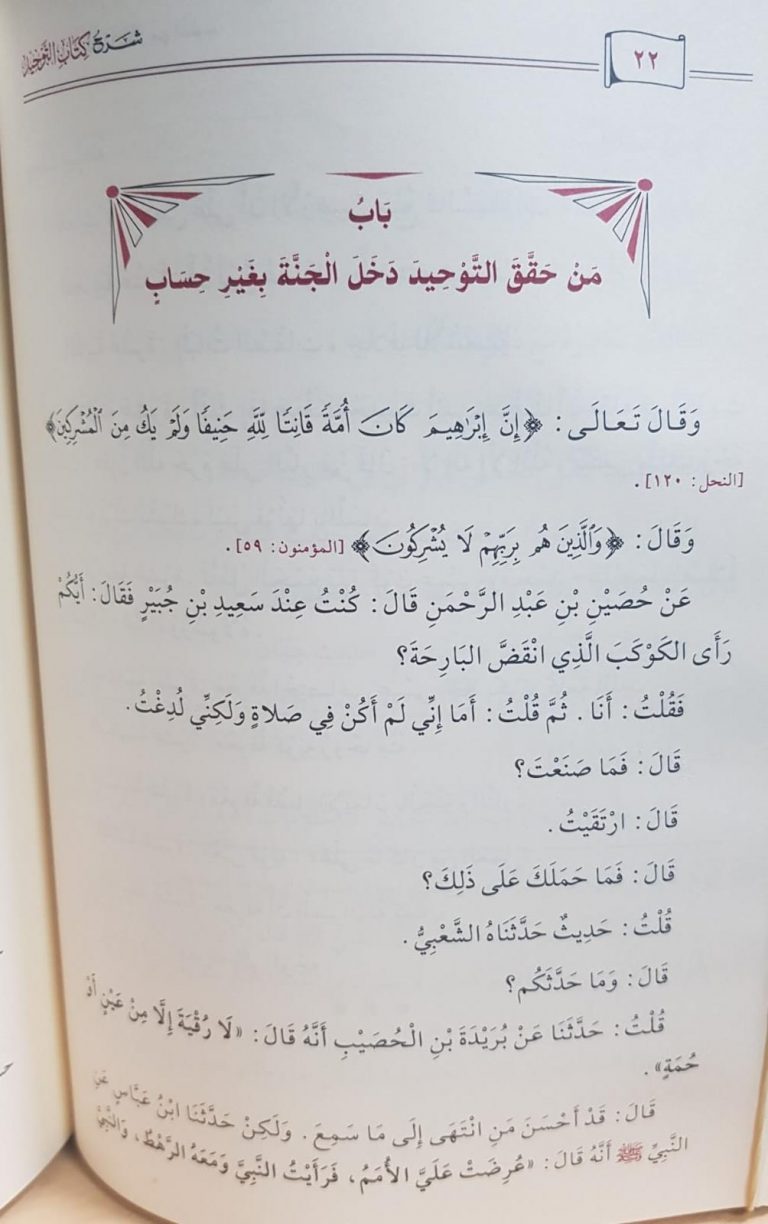 شَرْحُ كِتَابِ التَّوْحِيدِ
٢٢
بَابُ
مَنْ حَقَّقَ التَّوْحِيدَ دَخَلَ الْجَنَّةَ بِغَيْرِ حِسَابٍ
وَقَالَ تَعَالَى: ﴿إِنَّ إِبْرَاهِيمَ كَانَ أُمَّةً قَانِتًا لِلَّهِ حَنِيفًا وَلَمْ يَكُ مِنَ الْمُشْرِكِينَ﴾
[النحل: ١٢٠].
وَقَالَ: ﴿وَالَّذِينَ هُم بِرَبِّهِمْ لَا يُشْرِكُونَ﴾ [المؤمنون: ٥٩].
عَنْ حُصَيْنِ بْنِ عَبْدِ الرَّحْمَنِ قَالَ: كُنْتُ عِنْدَ سَعِيدِ بْنِ جُبَيْرٍ فَقَالَ: أَيُّكُمْ
رَأَى الكَوْكَبَ الَّذِي انْقَضَّ البَارِحَةَ؟
فَقُلْتُ: أَنَا. ثُمَّ قُلْتُ: أَمَا إِنِّي لَمْ أَكُنْ فِي صَلاةٍ وَلَكِنِّي لُدِغْتُ.
قَالَ: فَمَا صَنَعْتَ؟
قَالَ: ارْتَقَيْتُ.
قَالَ: فَمَا حَمَلَكَ عَلَى ذَلِكَ؟
قُلْتُ: حَدِيثٌ حَدَّثَنَاهُ الشَّعْبِيُّ.
قَالَ: وَمَا حَدَّثَكُم؟
قُلْتُ: حَدَّثَنَا عَنْ بُرَيْدَةَ بْنِ الْحُصَيْبِ أَنَّهُ قَالَ: «لَا رُقْيَةَ إِلَّا مِنْ عَيْنٍ أَوْ
حُمَةٍ».
قَالَ: قَدْ أَحْسَنَ مَنِ انْتَهَى إِلَى مَا سَمِعَ. وَلَكِنْ حَدَّثَنَا ابْنُ عَبَّاسٍ عَنِ
النَّبِيِّ ﷺ أَنَّهُ قَالَ: «عُرِضَتْ عَلَيَّ الأُمَمُ، فَرَأَيْتُ النَّبِيَّ وَمَعَهُ الرَّهْطُ، وَالنَّبِيَّ